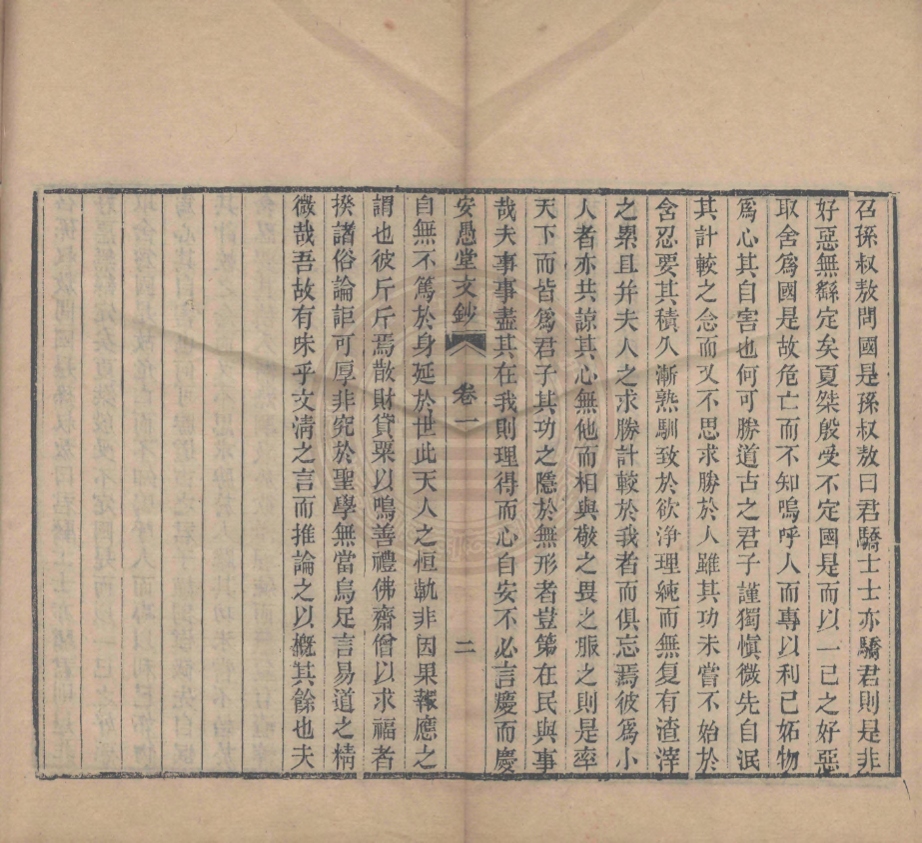 召孫叔敖問國是孫叔敖曰君驕士士亦驕君則是非
好惡無繇定矣夏桀殷受不定國是而以一已之好惡
取舍爲國是故危亡而不知嗚呼人而專以利己妬物
爲心其自害也何可勝道古之君子謹獨愼微先自泯
其計較之念而又不思求勝於人雖其功未嘗不始於
含忍要其積久漸熟馴致於欲浄理純而無复有渣滓
之累且幷夫人之求勝計較於我者而俱忘焉彼爲小
人者亦共諒其心無他而相與敬之畏之服之則是率
天下而皆爲君子其功之隱於無形者豈第在民與事
哉夫事事盡其在我則理得而心自安不必言慶而慶
安愚堂文鈔 卷一 二
自無不篤於身延於世此天人之恒軌非因果報應之
謂也彼斤斤焉散財貸粟以鳴善禮佛齋僧以求福者
揆諸俗論詎可厚非究於聖學無當烏足言易道之精
微哉吾故有味乎文淸之言而推論之以槪其餘也夫